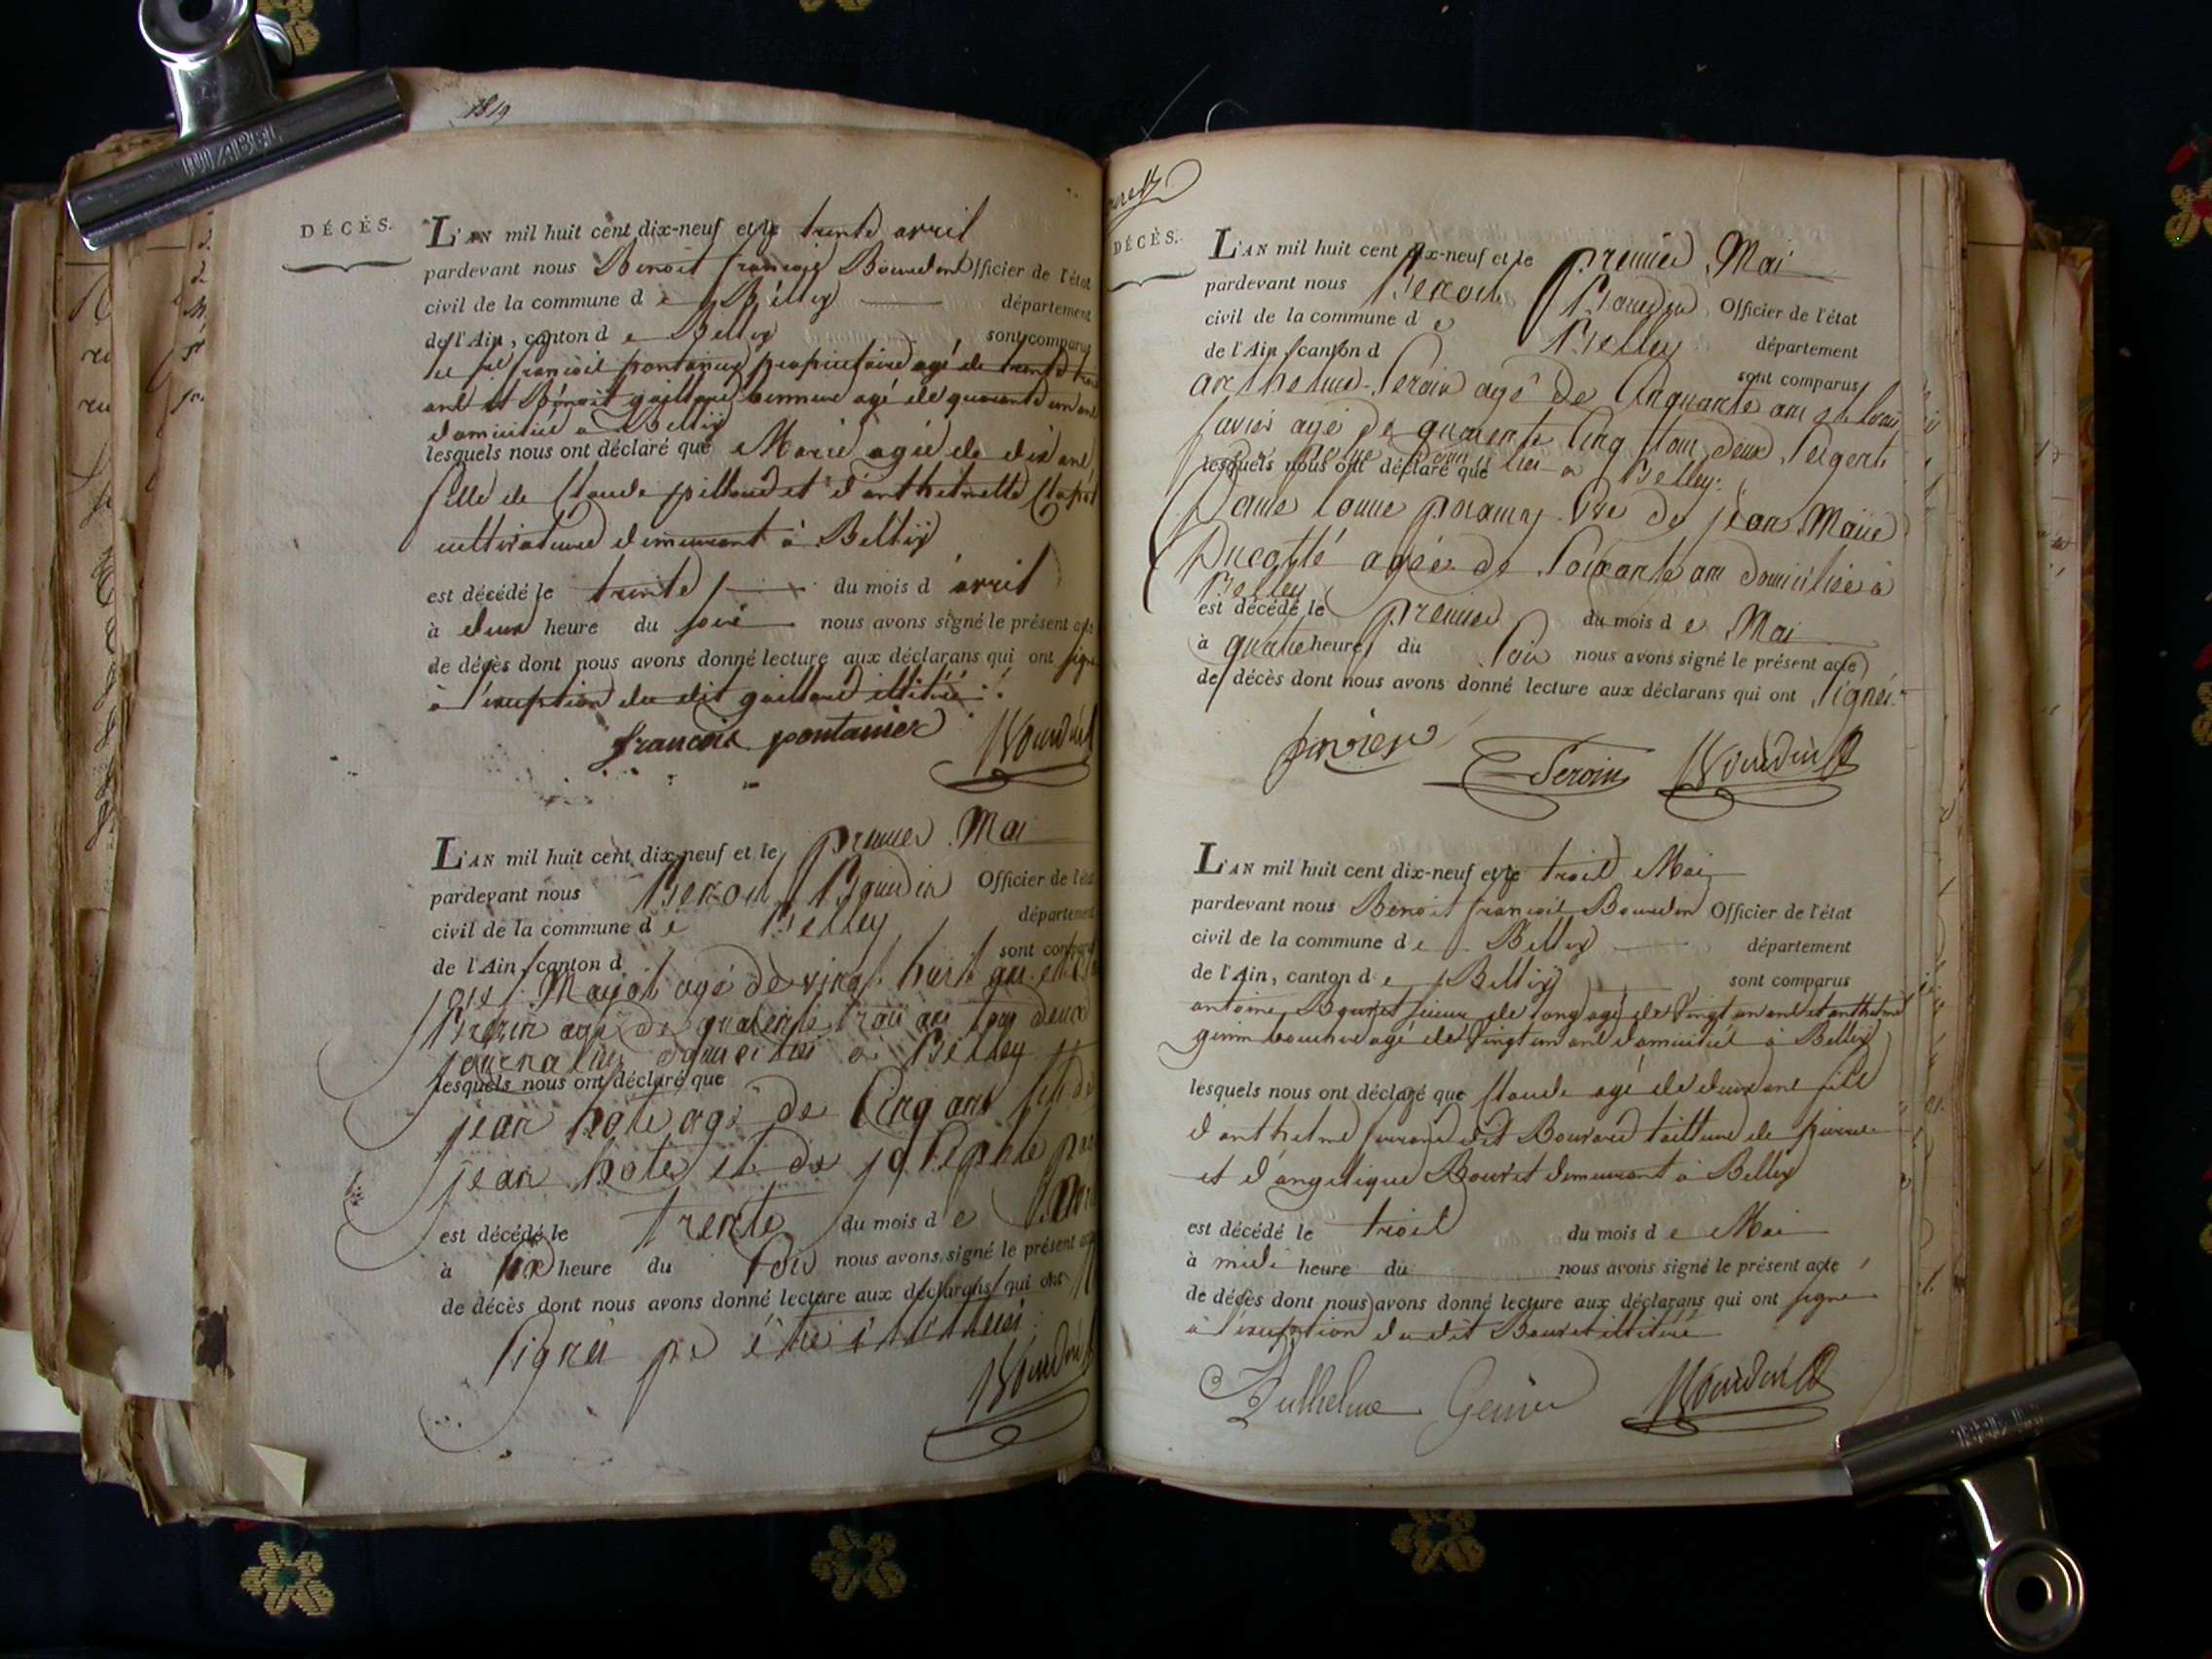 1819
DÉCÈS.
L'AN mil huit cent dix-neuf et le trente avril
pardevant nous Benoit françois Bourdin Officier de l'état
civil de la commune de Belley département
de l'Ain, canton de Belley sont comparus
françois pontanier propriétaire agé de trente
ans et Benoit gaillard agé de quarante un ans
domicilié a Belley
lesquels nous ont déclaré que Marie agée de dix ans
fille de Claude pilloud et d'anthelmette
cultivateurs demeurant à Belley
est décédé le trente du mois d'avril
à deux heure du soir nous avons signé le présent acte
de décès dont nous avons donné lecture aux déclarans qui ont signé
à l'exception du dit gaillard illitéré
francois pontanier Bourdin
L'AN mil huit cent dix-neuf et le premier Mai
pardevant nous Benoit Bourdin Officier de l'état
civil de la commune de Belley département
de l'Ain, canton d sont comparus
Mayot agé de vingt huit ans et
agé de quarente trois ans tous deux
journaliers domiciliés a Belley
lesquels nous ont déclaré que
jean hote agé de Cinq ans fils de
jean hote et de josephte
est décédé le trente du mois de
à six heure du Soir nous avons signé le présent acte
de décès dont nous avons donné lecture aux déclarans qui ont
Signés pr être illitérés
Bourdin
DÉCÈS.
L'AN mil huit cent dix-neuf et le premier Mai
pardevant nous Benoit Bourdin Officier de l'état
civil de la commune de Belley département
de l'Ain, canton d sont comparus
anthelme Peroin agé de Cinquante ans et
favier agé de quarente Cinq tous deux Sergents
de police domiciliés a Belley
lesquels nous ont déclaré que
Dame Vve de jean Marie
Ducotté agée de Soixante ans domiciliée à
Belley
est décédé le premier du mois de Mai
à quatre heure du Soir nous avons signé le présent acte
de décès dont nous avons donné lecture aux déclarans qui ont Signés
favier Peroin Bourdin
L'AN mil huit cent dix-neuf et le trois Mai
pardevant nous Benoit françois Bourdin Officier de l'état
civil de la commune de Belley département
de l'Ain, canton de Belley sont comparus
antoine Bouvet scieur de long agé de vingt un ans et anthelme
genin boucher agé de vingt un ans domiciliés à Belley
lesquels nous ont déclaré que Claude agé de deux ans fils
d'anthelme dit Bouvard tailleur de pierre
et d'angelique Bouvet demeurant à Belley
est décédé le trois du mois de Mai
à midi heure du nous avons signé le présent acte
de décès dont nous avons donné lecture aux déclarans qui ont signé
à l'exception du dit Bouvet illitéré
Anthelme Genin Bourdin